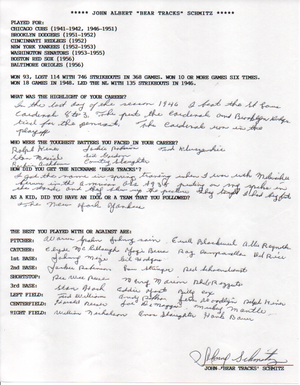 ***** JOHN ALBERT "BEAR TRACKS" SCHMITZ *****
PLAYED FOR:
CHICAGO CUBS (1941-1942, 1946-1951)
BROOKLYN DODGERS (1951-1952)
CINCINNATI REDLEGS (1952)
NEW YORK YANKEES (1952-1953)
WASHINGTON SENATORS (1953-1955)
BOSTON RED SOX (1956)
BALTIMORE ORIOLES (1956)
WON 93, LOST 114 WITH 746 STRIKEOUTS IN 366 GAMES. WON 10 OR MORE GAMES SIX TIMES.
WON 18 GAMES IN 1948. LED THE NL WITH 135 STRIKEOUTS IN 1946.
WHAT WAS THE HIGHLIGHT OF YOUR CAREER?
In the last day of the season 1946 I beat the St Louis
Cardinals 8 to 3. The put the Cardinals and Brooklyn Dodgers
tied for the pennant. The Cardinals won in the
playoff
WHO WERE THE TOUGHEST BATTERS YOU FACED IN YOUR CAREER?
Ralph Kiner Jackie Robinson Ted Kluszewski
Stan Musial Sid Gordon
Enos Slaughter
HOW DID YOU GET THE NICKNAME "BEAR TRACKS"?
I got this name in Spring training when I was with Milwaukee
AS A KID, DID YOU HAVE AN IDOL OR A TEAM THAT YOU FOLLOWED?
The New York Yankees
THE BEST YOU PLAYED WITH OR AGAINST ARE:
PITCHER: Warren Spahn Johnny Sain Ewell Blackwell Allie Reynolds
CATCHER: Clyde McCullough Yogi Berra Roy Campanella Del Rice
1st BASE: Johnny Mize Gil Hodges
2nd BASE: Jackie Robinson Red Schoendienst
SHORTSTOP: Pee Wee Reese Marty Marion Phil Rizzuto
3rd BASE: Stan Hack Billy Cox
LEFT FIELD: Ted Williams Andy Pafko Gene Woodling Ralph Kiner
CENTERFIELD: Joe DiMaggio Mickey Mantle
RIGHT FIELD: William Nicholson Enos Slaughter Hank Bauer
Johnny Schmitz
JOHN "BEAR TRACKS" SCHMITZ